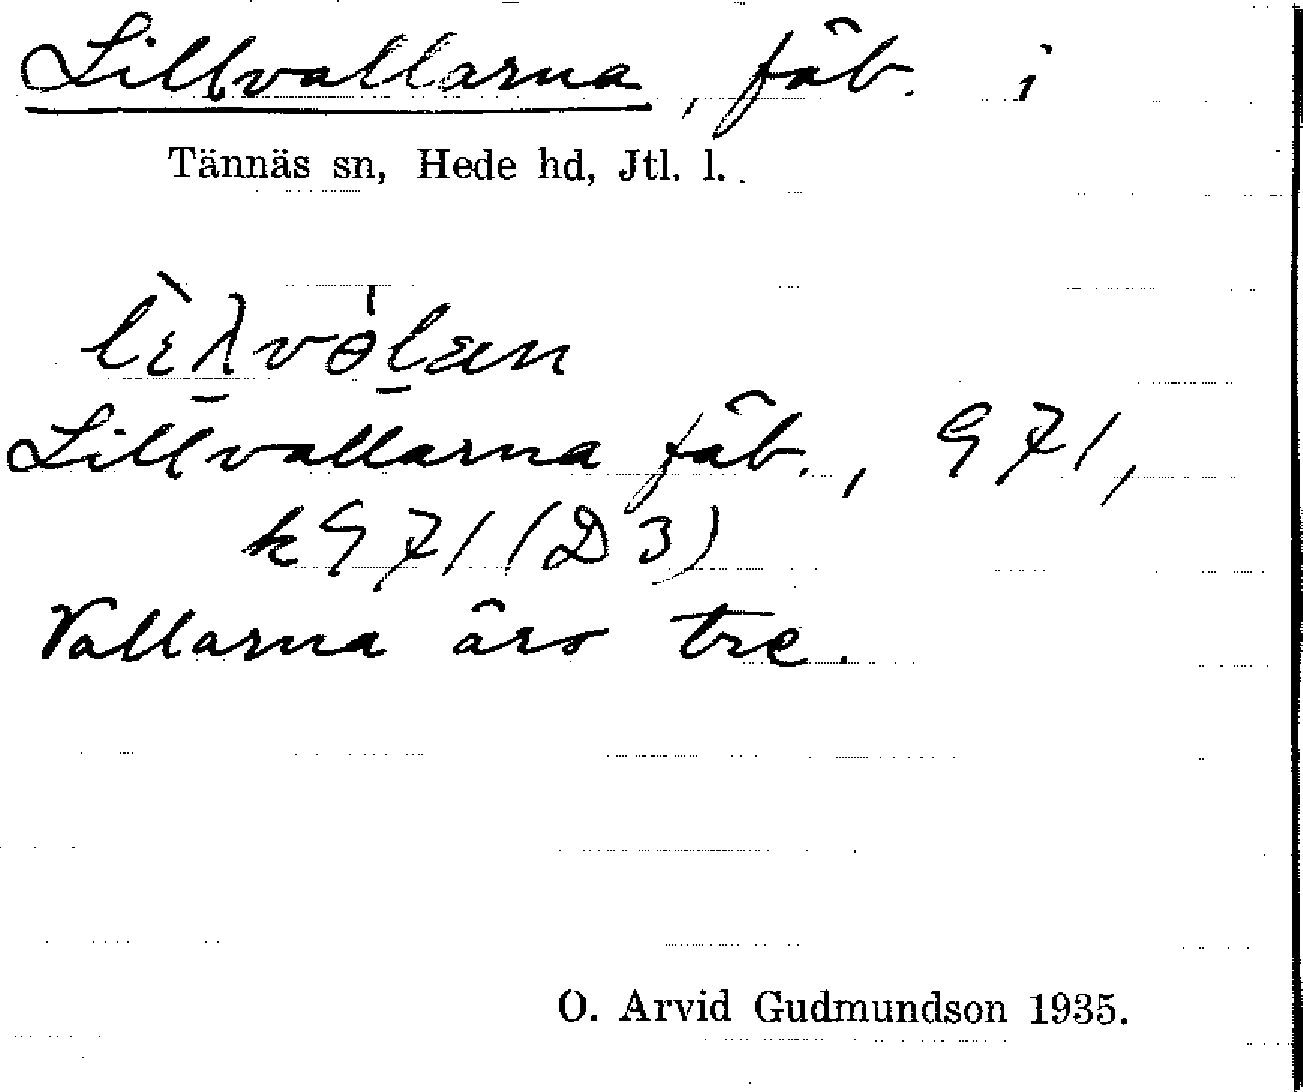 Lillvallarna, fäb. i
Tännäs sn, Hede hd, Jtl. l.
Lillvallarna fäb., G 71,
k G 71 (D 3)
Vallarna äro tre.
O. Arvid Gudmundson 1935.